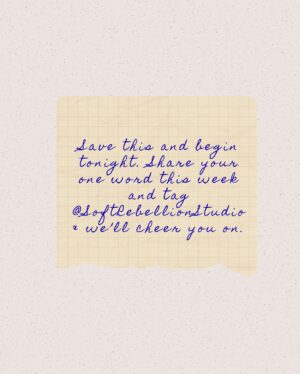 Save this and begin
tonight. Share your
one word this week
and tag
@SoftRebellionStudio
& we'll cheer you on.